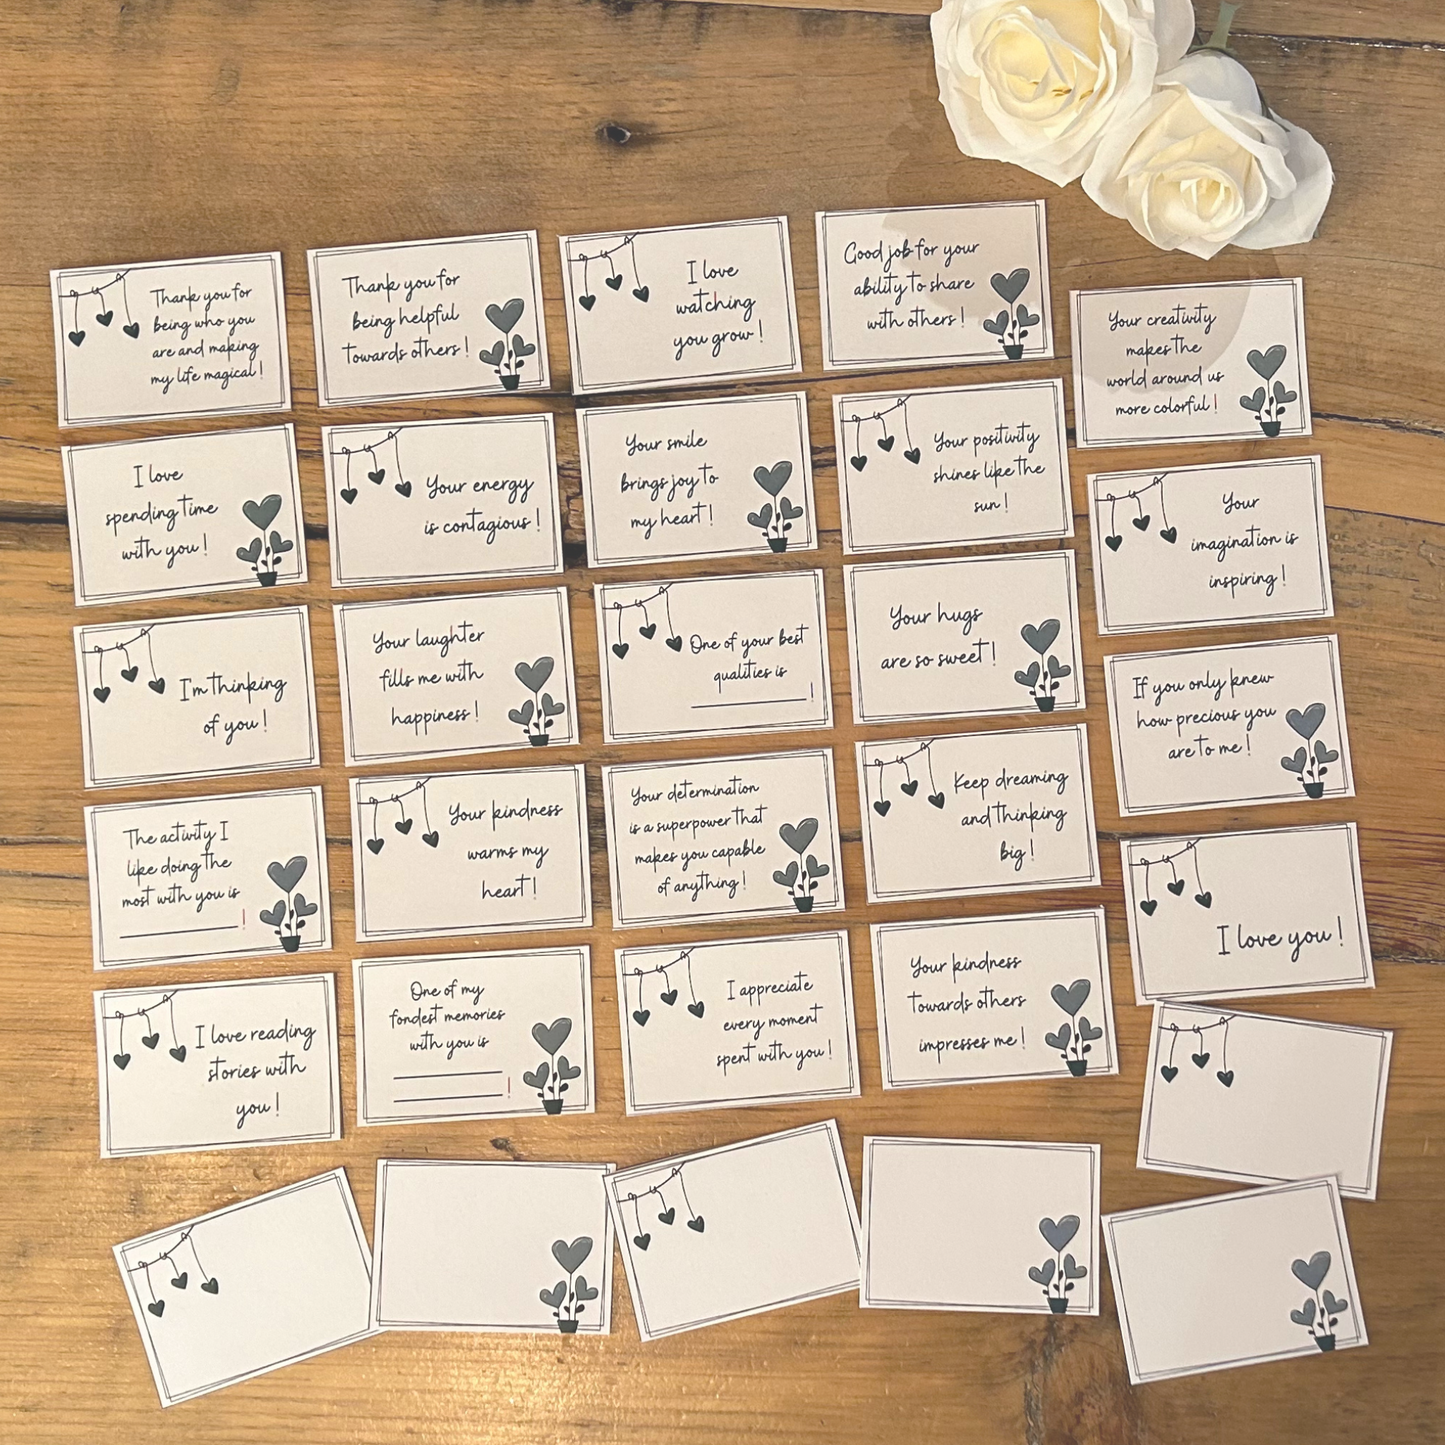 Thank you for
being who you
are and making
my life magical!
Thank you for
being helpful
towards others!
I love
watching
you grow!
Good job for your
ability to share
with others!
Your creativity
makes the
world around us
more colorful!
I love
spending time
with you!
Your energy
is contagious!
Your smile
brings joy to
my heart!
Your positivity
shines like the
sun!
Your
imagination is
inspiring!
I'm thinking
of you!
Your laughter
fills me with
happiness!
One of your best
qualities is
!
Your hugs
are so sweet!
If you only knew
how precious you
are to me!
The activity I
like doing the
most with you is
!
Your kindness
warms my
heart!
Your determination
is a superpower that
makes you capable
of anything!
Keep dreaming
and thinking
big!
I love you!
I love reading
stories with
you!
One of my
fondest memories
with you is
!
I appreciate
every moment
spent with you!
Your kindness
towards others
impresses me!